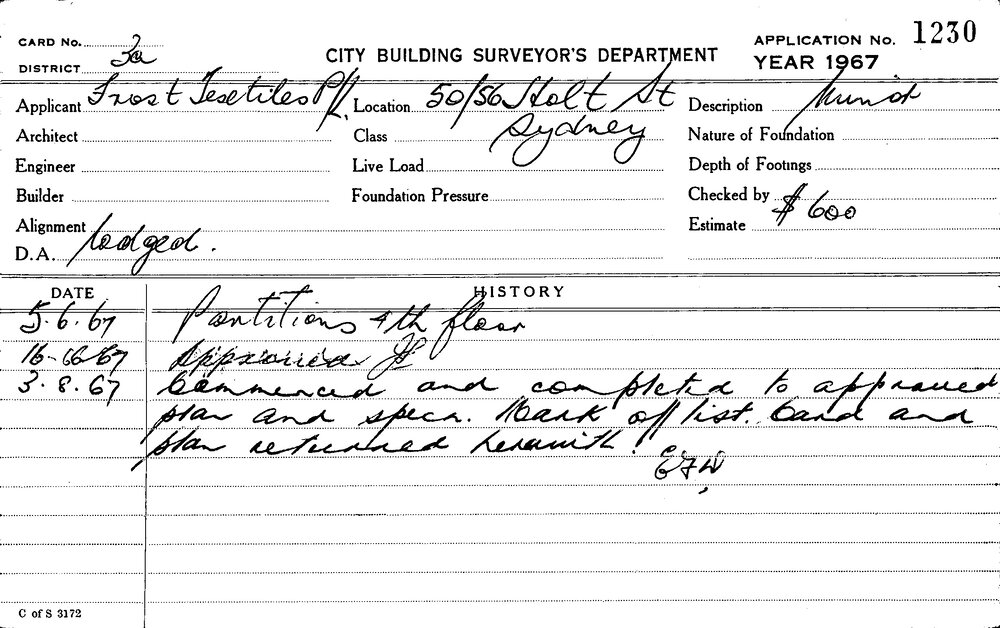 CARD No. 3a
CITY BUILDING SURVEYOR'S DEPARTMENT
APPLICATION No. 1230
DISTRICT
YEAR 1967
Applicant Frost Textiles P/L. Location 50/56 Holt St Description
Architect Class Sydney Nature of Foundation
Engineer Live Load Depth of Footings
Builder Foundation Pressure Checked by
Alignment Estimate $600
D.A. lodged.
DATE HISTORY
5.6.67 Partitions 4th floor
16-6-67 Approved
3.8.67 Commenced and completed to approved
plan and specn. Mark off list. Card and
plan returned herewith.
C of S 3172